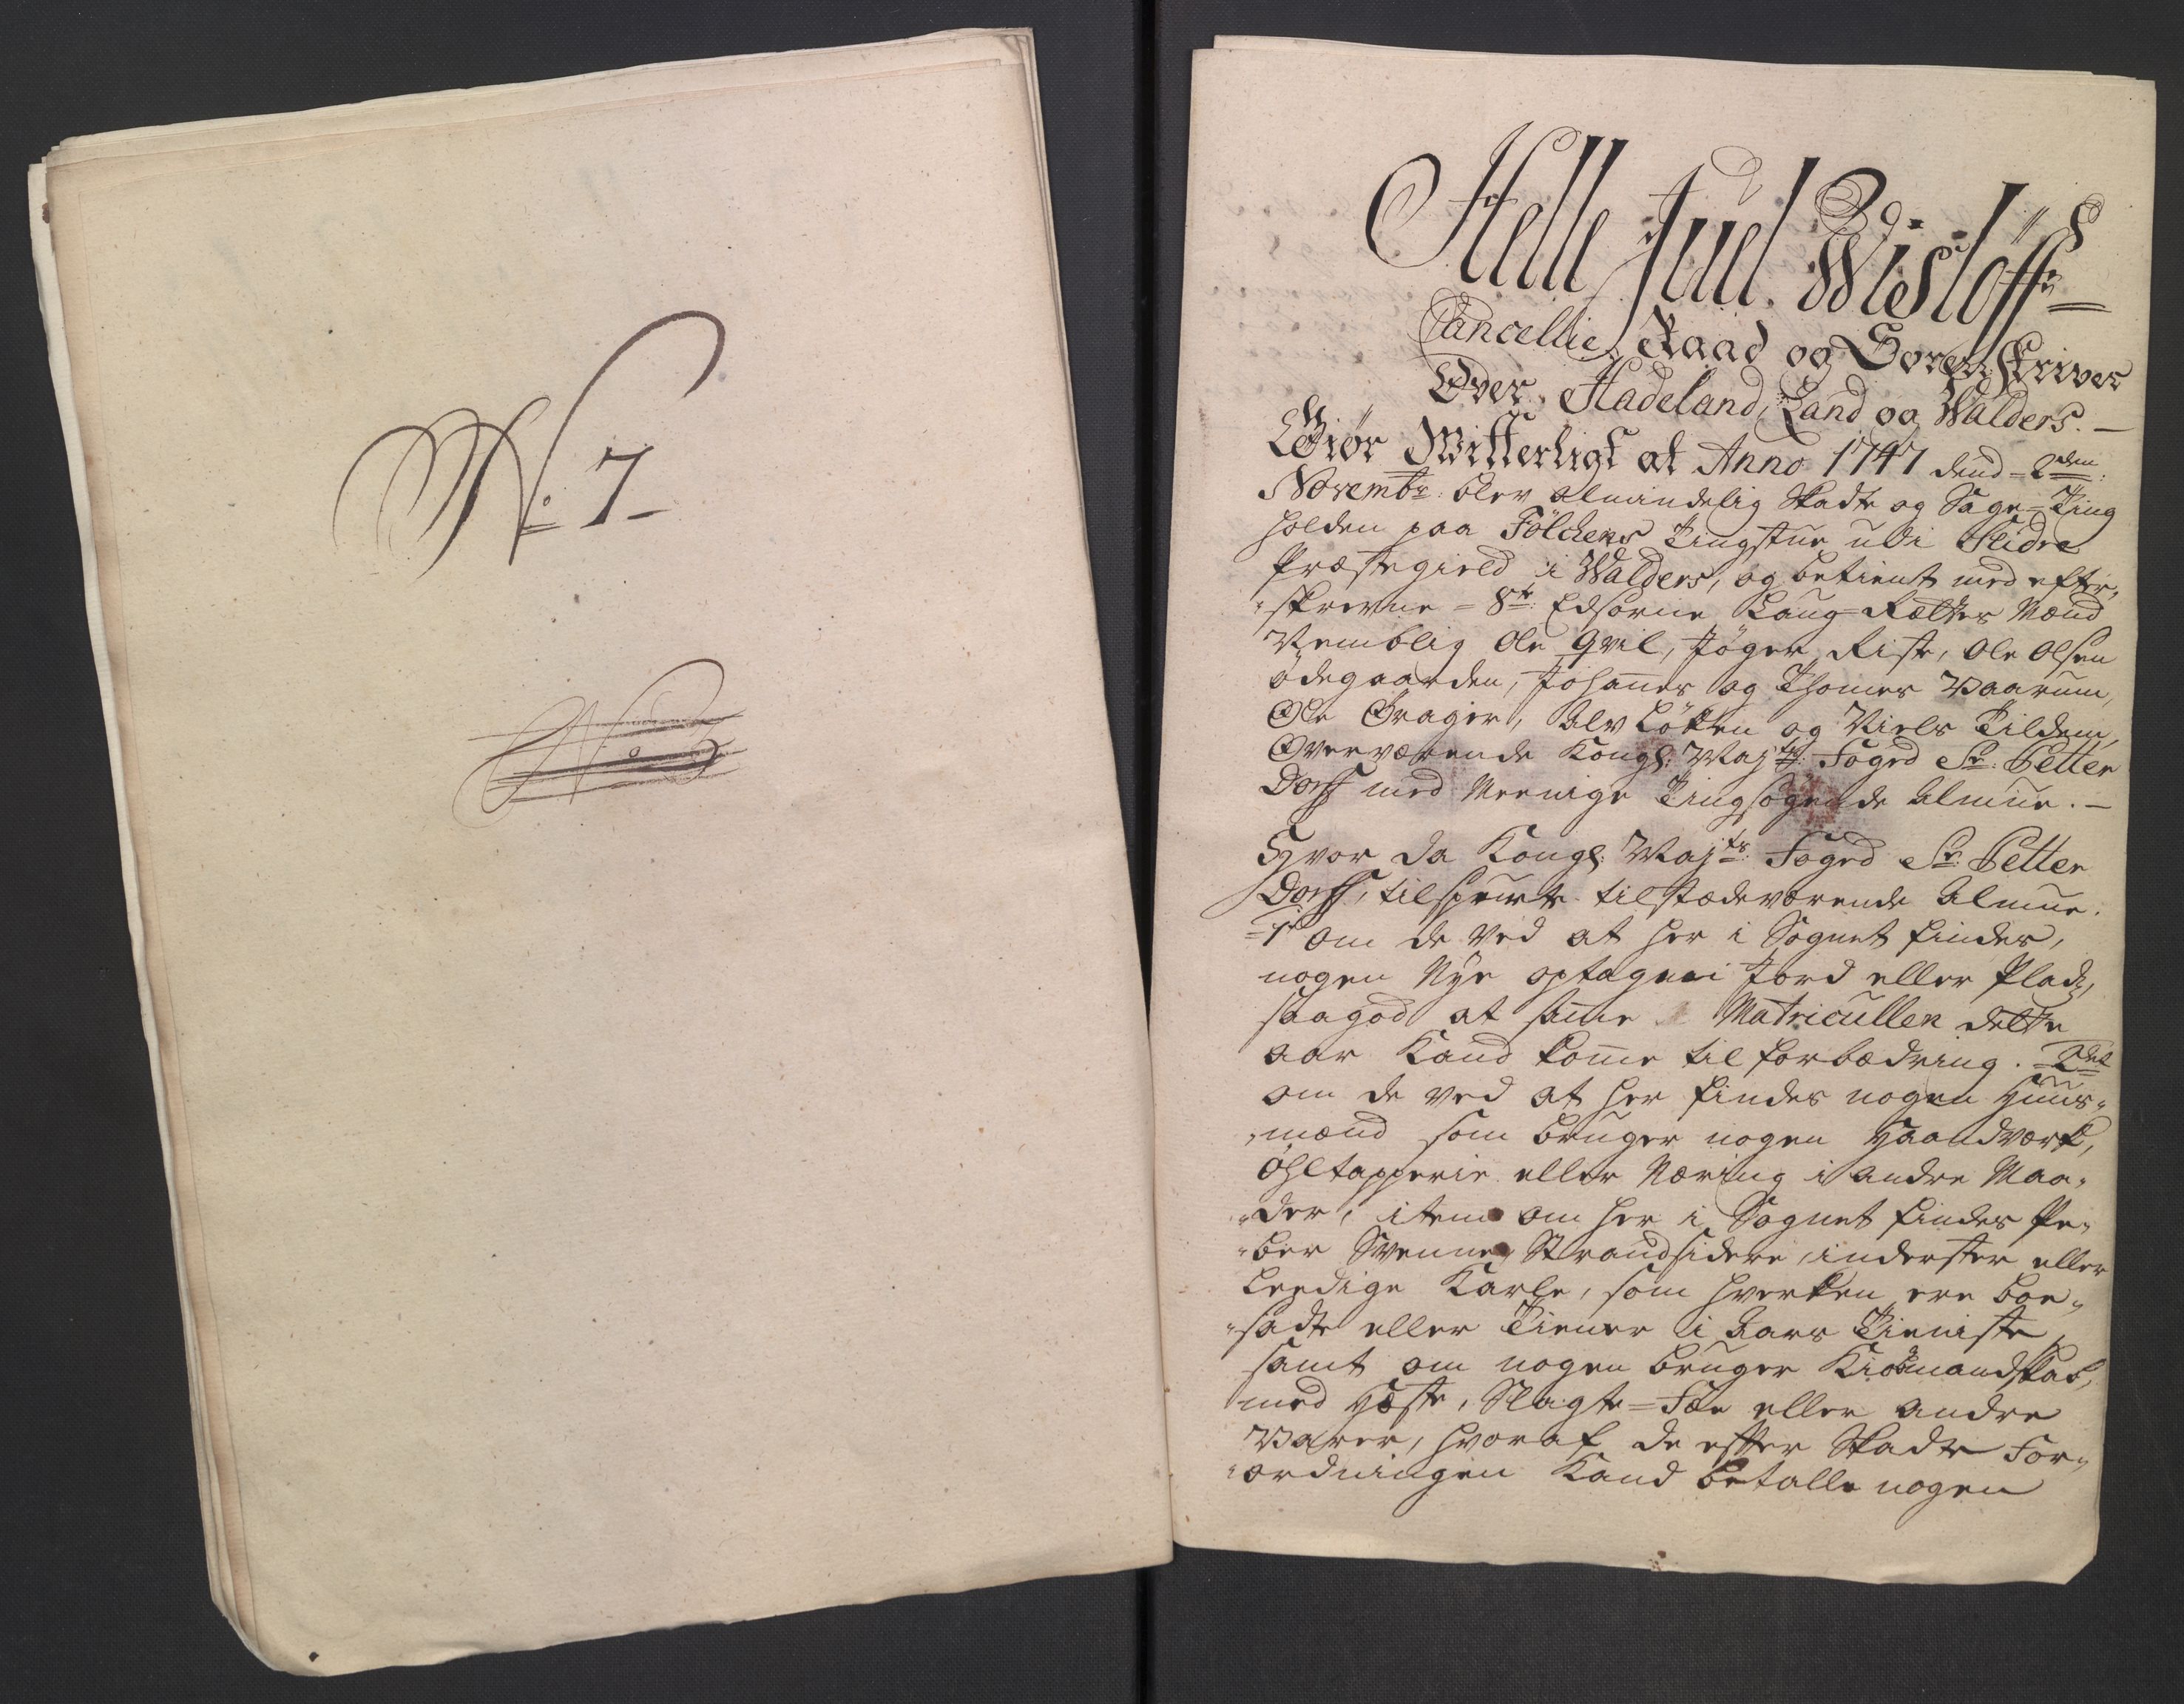 No: 7
No: 3
Helle Juel Wisløff
Cancellie, Raad og Sorenskriver
Over Hadeland, Land og Walders. —
Giør Witterligt at Anno 1747 dend = 2den:
Novembr: blev Almindelig Skadte og Sage-Ting
holden paa Fölchens Tingstue udi Slidre
Præstegield i Walders, og betient med efter,
skrevne = 8te: Edsorne Laug-Rættes Mænd
Nemblig Ole Qvil, Jöger Riste, Ole Olsen
ödegaarden, Johannes og Thomes Vaarum,
Ole Grager, Alv Löken og Niels Tildem,
Overværende Kongl: Majts: Foged Sr: Petter
Dorff med Meenige Tingsøgende Almue. —
Hvor da Kongl: Majts: Foged Sr: Petter
Dorff, tilspurte tilstædeværende Almue.
=1t om de ved at her i Sognet findes,
nogen Nye optagen Jord eller Pladz,
saagod at samme Matricullen dette
aar Kand komme til forbædring. =2det
om de ved at her findes nogen Huus-
mænd som bruger nogen Haandværk,
Öhltapperie eller Næring i andre Maa-
der, item om her i Sognet findes Pe-
ber Svenne, Strandsidere, inderster eller
Leedige Karle, som hverken ere boe-
sadte eller Tiener i Aars Tieniste
samt om nogen bruger Kiobmandskab,
med Heste, Slagte=Fæe eller andre
Varer, hvoraf de efter Skadte For-
ordningen Kand betalle nogen